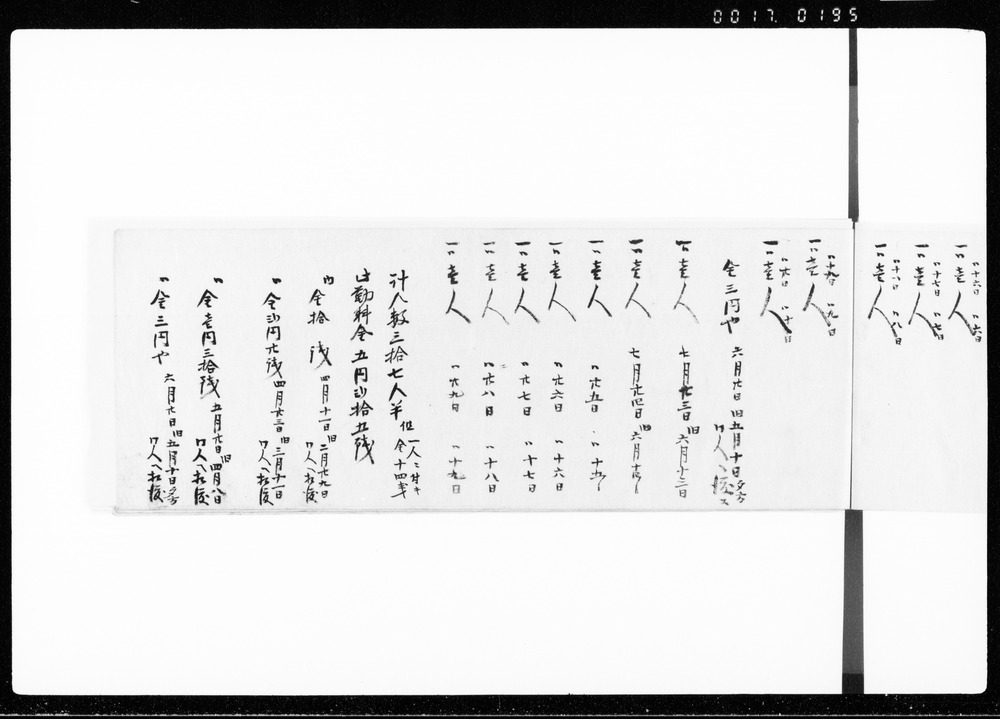 0017. 0195
一〃壱人 〃十六日 〃六日
一〃壱人 〃十七日 〃七日
一〃壱人 〃十八日 〃八日
一〃壱人 〃十九日 〃九日
一〃壱人 〃廿日 〃十日
金三円や 六月廿日 旧五月十日夕方 同人へ渡ス
一〃壱人 七月廿三日 旧六月十三日
一〃壱人 七月廿四日 旧六月十四日
一〃壱人 〃廿五日 〃十五〃
一〃壱人 〃廿六日 〃十六日
一〃壱人 〃廿七日 〃十七日
一〃壱人 〃廿八日 〃十八日
一〃壱人 〃廿九日 〃十九日
計人数三拾七人半 但一人ニ付キ金十四銭
此勤料金五円弐拾五銭
内金拾銭 四月十一日 旧二月廿九日 同人へ相渡
〃金弐円廿銭 四月廿三日 旧三月十一日 同人へ相渡
〃金壱円三拾銭 五月廿日 旧四月八日 同人へ相渡
〃金三円や 六月廿日 旧五月十日夕方 同人へ相渡